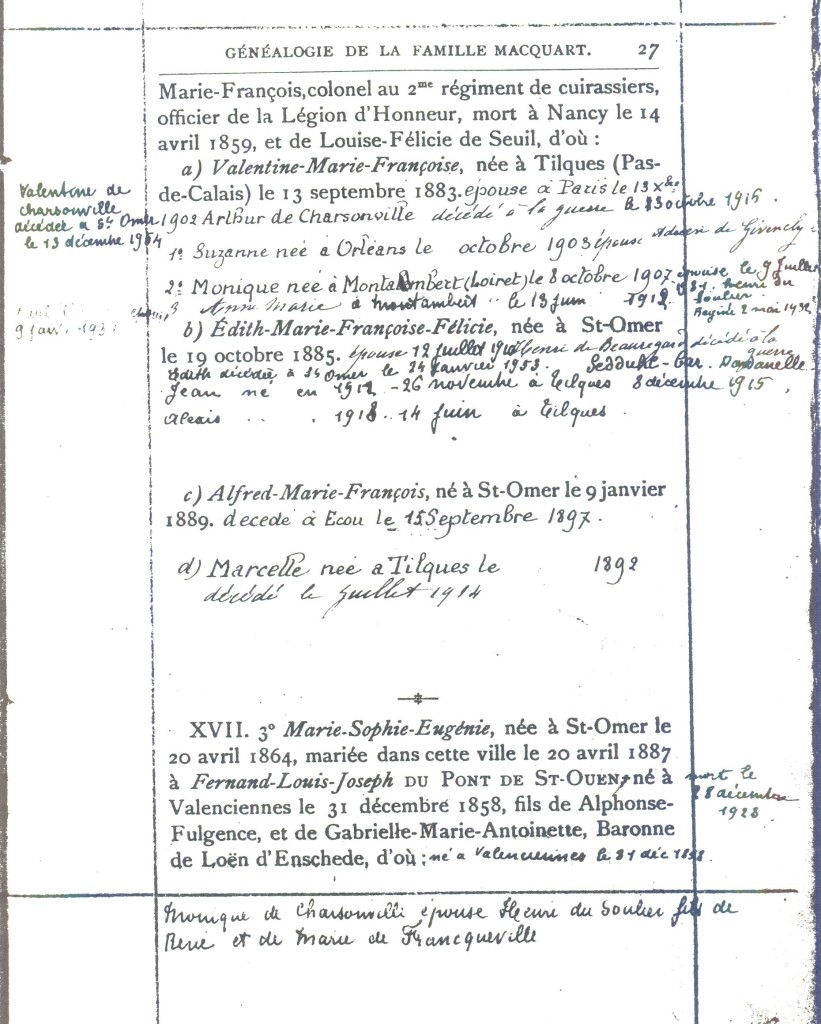 GÉNÉALOGIE DE LA FAMILLE MACQUART. 27
Marie-François, colonel au 2me régiment de cuirassiers,
officier de la Légion d'Honneur, mort à Nancy le 14
avril 1859, et de Louise-Félicie de Seuil, d'où :
a) Valentine-Marie-Françoise, née à Tilques (Pas-
de-Calais) le 13 septembre 1883. épouse à Paris le 13 xbre
Valentine de
charsonville
décédée a St Omer
le 13 décembre 1954
1902 Arthur de Charsonville décédé à la guerre le 23 octobre 1915.
1º Suzanne née à Orléans le octobre 1903 épouse de Givenchy
2º Monique née à Montambert (Loiret) le 8 octobre 1907 épouse le 9 juillet
henri du
Soulier
3 Anne Marie à montambert le 13 juin 1912
9 janv. 193
b) Édith-Marie-Françoise-Félicie, née à St-Omer
le 19 octobre 1885. épouse 12 juillet 1910 henri de Beauregard décédé à la
guerre
Edith décédée à St Omer le 24 janvier 1953. Seddulh-Bar. Dardanelle
Jean né en 1912 - 26 novembre à Tilques 8 décembre 1915,
Alexis .. . 1913 .. 14 juin à Tilques
c) Alfred-Marie-François, né à St-Omer le 9 janvier
1889. decede à Ecou le 15 Septembre 1897.
d) Marcelle neé a Tilques le 1892
décédé le juillet 1914
XVII. 3º Marie-Sophie-Eugénie, née à St-Omer le
20 avril 1864, mariée dans cette ville le 20 avril 1887
à Fernand-Louis-Joseph DU PONT DE ST-OUEN, né à
mort le
28 décembre
1928
Valenciennes le 31 décembre 1858, fils de Alphonse-
Fulgence, et de Gabrielle-Marie-Antoinette, Baronne
de Loën d'Enschede, d'où : né a Valenciennes le 31 déc 1858.
Monique de Charsonvilli épouse Henri du Soulier fils de
René et de Marie de Francqueville